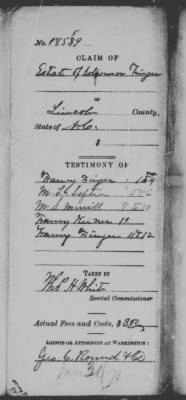 No. 18589
CLAIM OF
Estate of Solomon Finger
Lincoln County,
State of N.C.
$
TESTIMONY OF
Fanny Finger 1
M. L. Lofton
M. S. Merrill
Fanny
Fanny Finger 11 & 12
TAKEN BY
Thos H White
Special Commissioner
Actual Fees and Costs, $
AGENTS OR ATTORNEYS AT WASHINGTON:
Geo. C. Round & Co